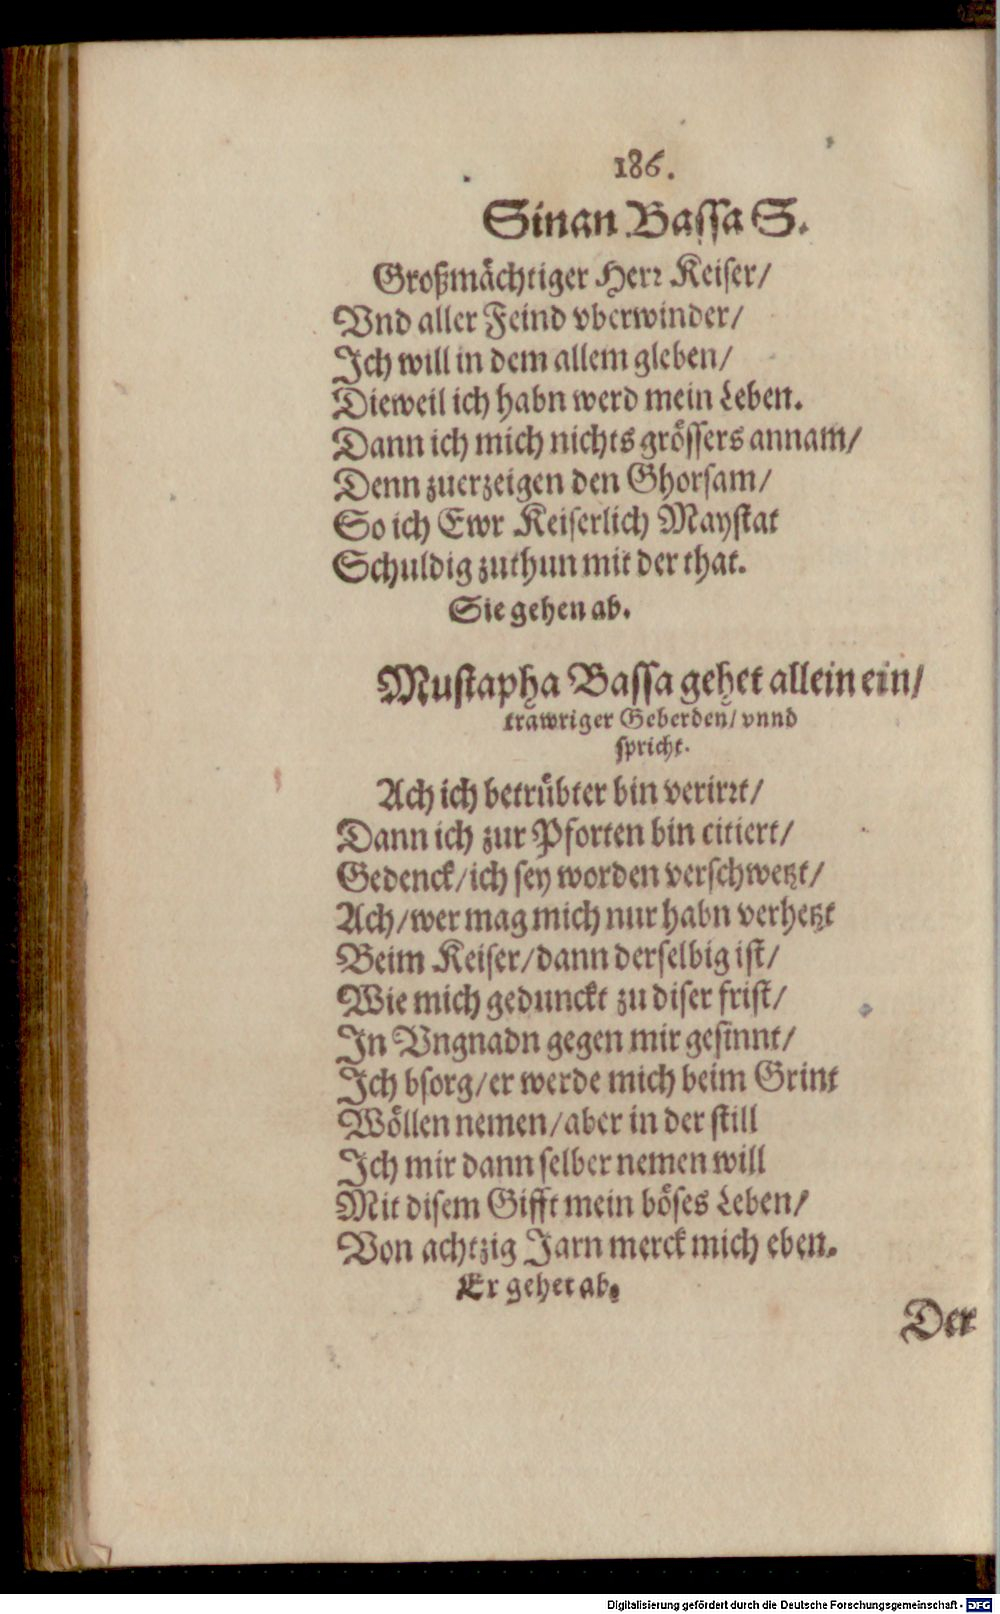 186.
Sinan Bassa S.
Großmächtiger Herr Keiser/
Vnd aller Feind vberwinder/
Ich will in dem allem gleben/
Dieweil ich habn werd mein Leben.
Dann ich mich nichts grössers annam/
Denn zuerzeigen den Ghorsam/
So ich Ewr Keiserlich Maystat
Schuldig zuthun mit der that.
Sie gehen ab.
Mustapha Bassa gehet allein ein/
trawriger Geberden/ vnnd
spricht.
Ach ich betrübter bin verirrt/
Dann ich zur Pforten bin citiert/
Gedenck/ ich sey worden verschwetzt/
Ach/ wer mag mich nur habn verhetzt
Beim Keiser/ dann derselbig ist/
Wie mich gedunckt zu diser frist/
In Vngnadn gegen mir gesinnt/
Ich bsorg/ er werde mich beim Grint
Wöllen nemen/ aber in der still
Ich mir dann selber nemen will
Mit disem Gifft mein böses Leben/
Von achtzig Jarn merck mich eben.
Er gehet ab.
Der
Digitalisierung gefördert durch die Deutsche Forschungsgemeinschaft - DFG